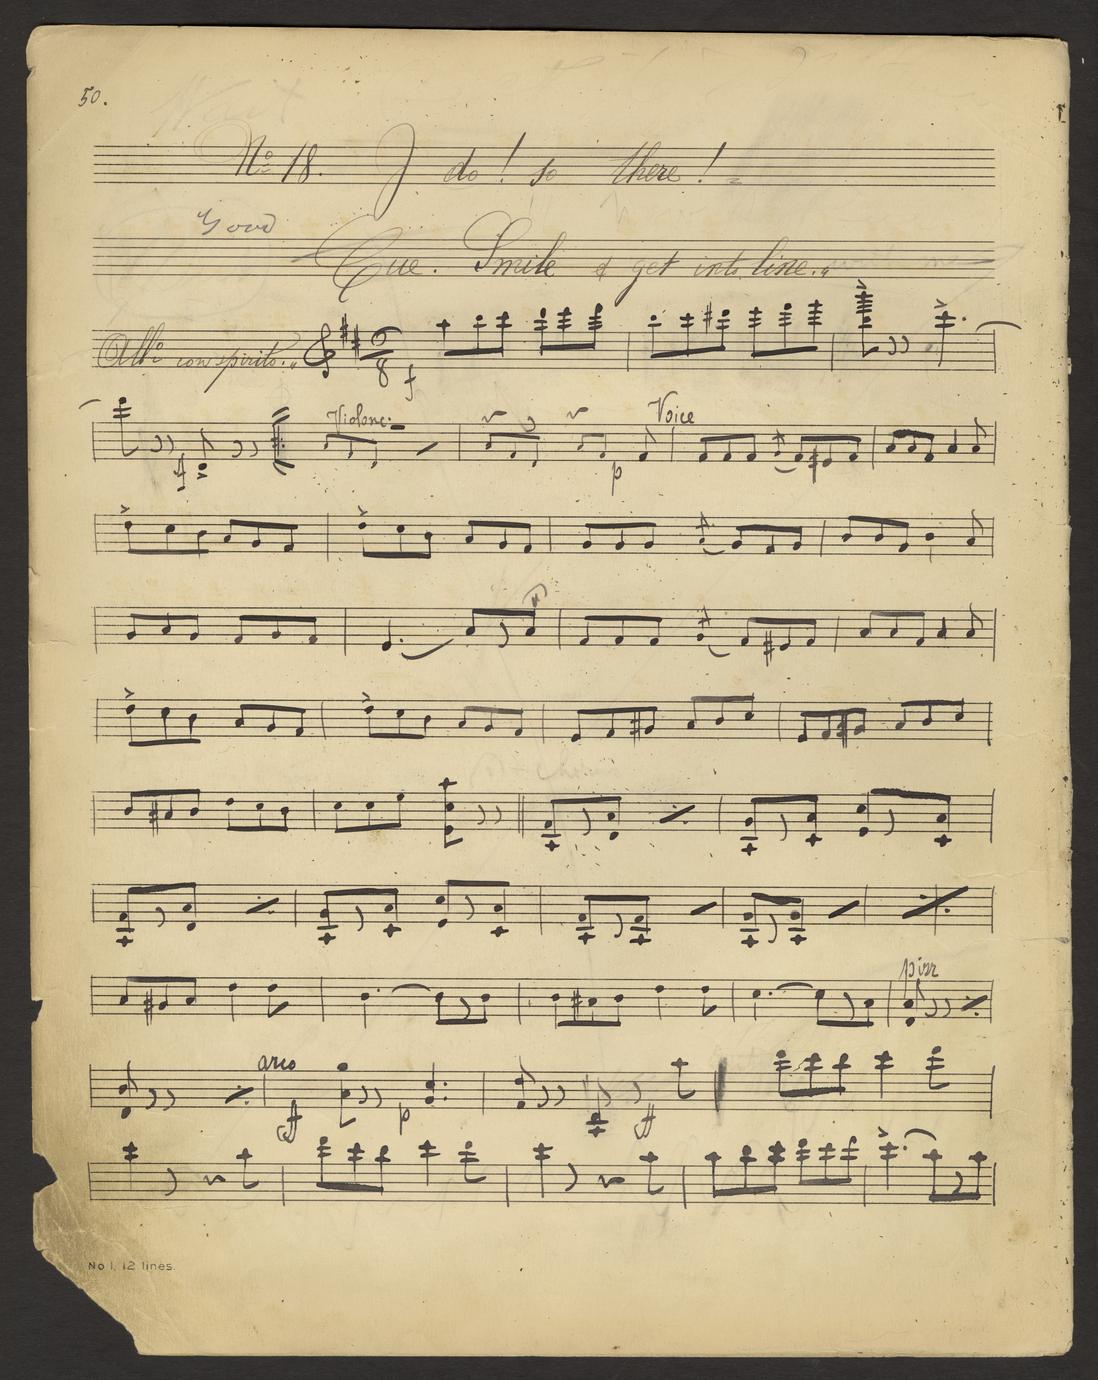 50.
No 18. I do! so there!
Good
Cue. Smile & get into line."
Allo con spirito.
6
8
f
Violonc:
Voice
f
p
pizz
arco
ff
p
ff
No 1, 12 lines.